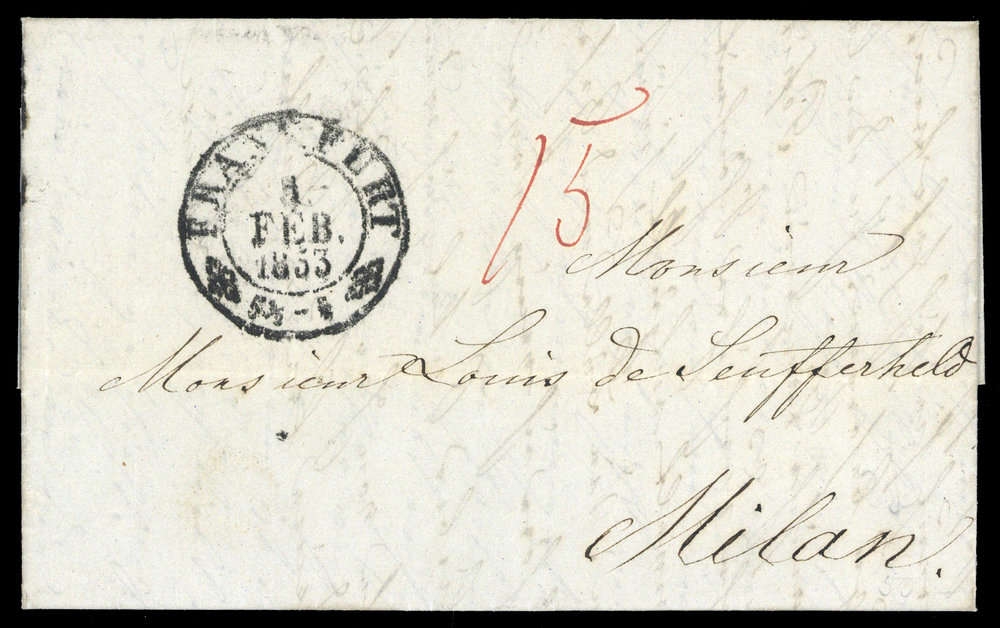 FRANKFURT
1
FEB.
1853
15
Monsieur
Monsieur Louis de Seufferheld
Milan.